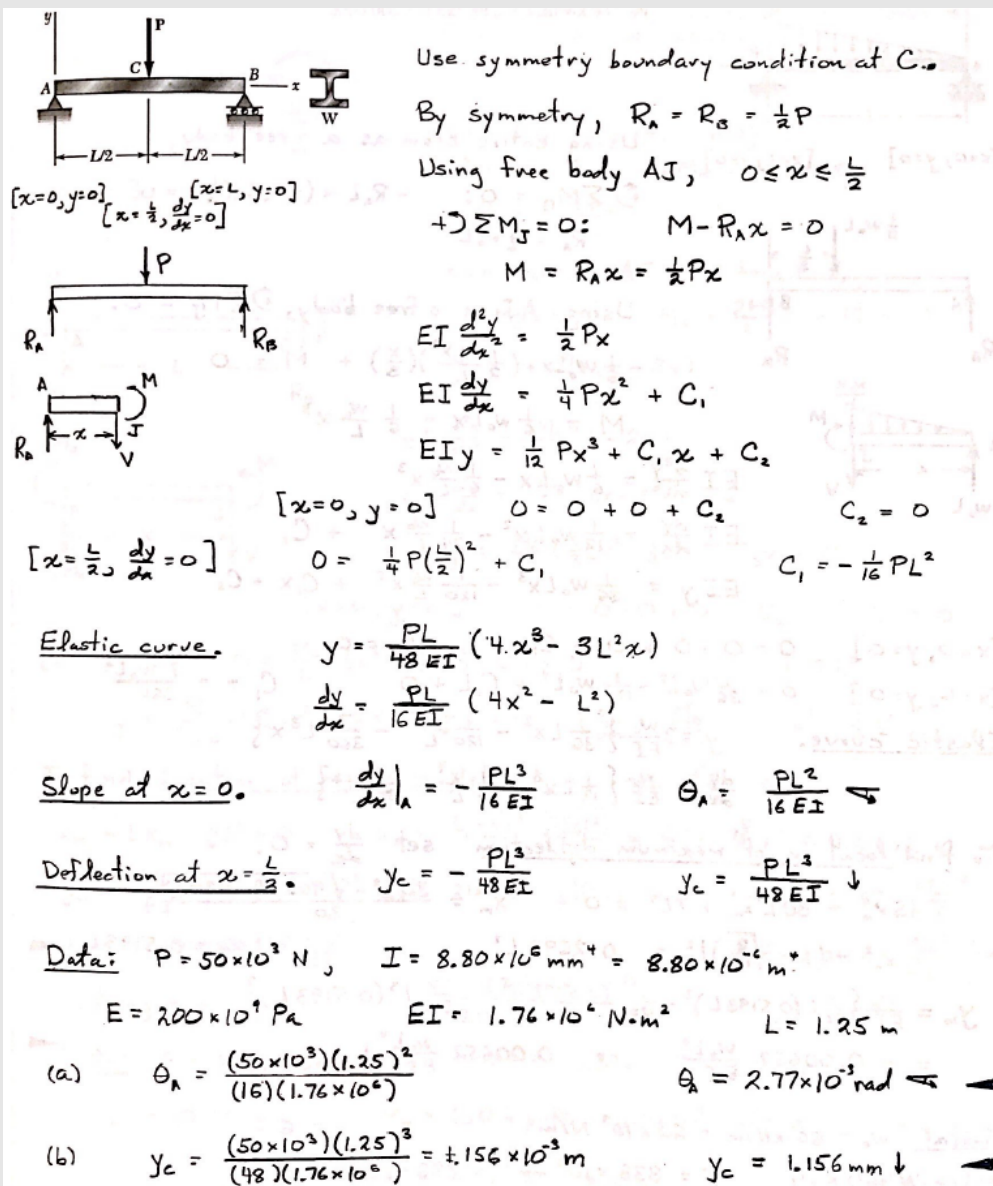 y
P
C
A
B
x
W
L/2
L/2
[x=0, y=0]
[x=L, y=0]
[x=L/2, dy/dx=0]
P
R_A
R_B
A
M
J
x
R_A
V
Use symmetry boundary condition at C.
By symmetry, R_A = R_B = 1/2 P
Using free body AJ, 0 ≤ x ≤ L/2
+↺ ΣM_J = 0: M - R_A x = 0
M = R_A x = 1/2 Px
EI d²y/dx² = 1/2 Px
EI dy/dx = 1/4 Px² + C₁
EI y = 1/12 Px³ + C₁ x + C₂
[x=0, y=0] 0 = 0 + 0 + C₂ C₂ = 0
[x=L/2, dy/dx=0] 0 = 1/4 P(L/2)² + C₁ C₁ = -1/16 PL²
Elastic curve. y = PL/48EI (4x³ - 3L²x)
dy/dx = PL/16EI (4x² - L²)
Slope at x=0. dy/dx|_A = - PL³/16EI θ_A = PL²/16EI
Deflection at x=L/2. y_C = - PL³/48EI y_C = PL³/48EI ↓
Data: P = 50×10³ N, I = 8.80×10⁶ mm⁴ = 8.80×10⁻⁶ m⁴
E = 200×10⁹ Pa EI = 1.76×10⁶ N·m² L = 1.25 m
(a) θ_A = (50×10³)(1.25)²/(16)(1.76×10⁶) θ_A = 2.77×10⁻³ rad
(b) y_C = (50×10³)(1.25)³/(48)(1.76×10⁶) = 1.156×10⁻³ m y_C = 1.156 mm ↓